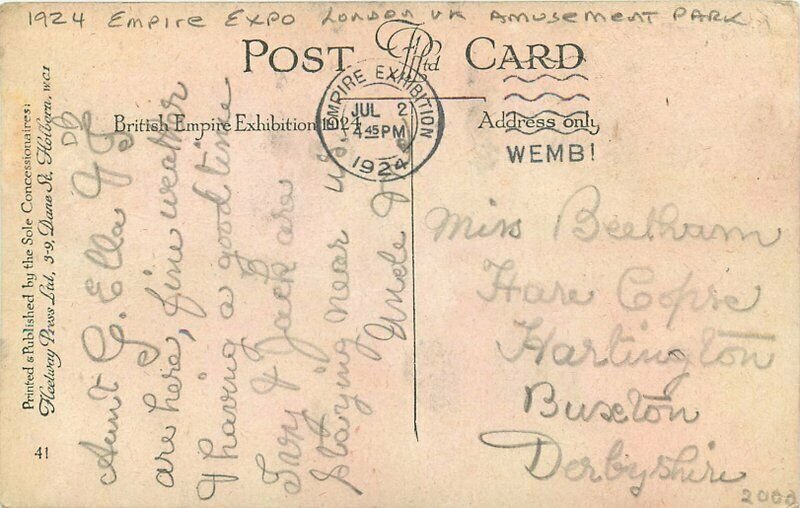 1924 EMPIRE EXPO LONDON UK AMUSEMENT PARK
POST CARD
Ltd
British Empire Exhibition 1924
Address only
EMPIRE EXHIBITION
JUL 2
4 45 PM
1924
WEMB
Printed & Published by the Sole Concessionaires:
Fleetway Press Ltd., 3-9, Dane St., Holborn, W.C.1
41
Aunt G. Ella & F
are here, fine weather
& having a good time
Ivy & Jack are
staying near us.
Uncle
Miss Beetham
Hare Copse
Hartington
Buxton
Derbyshire
2000